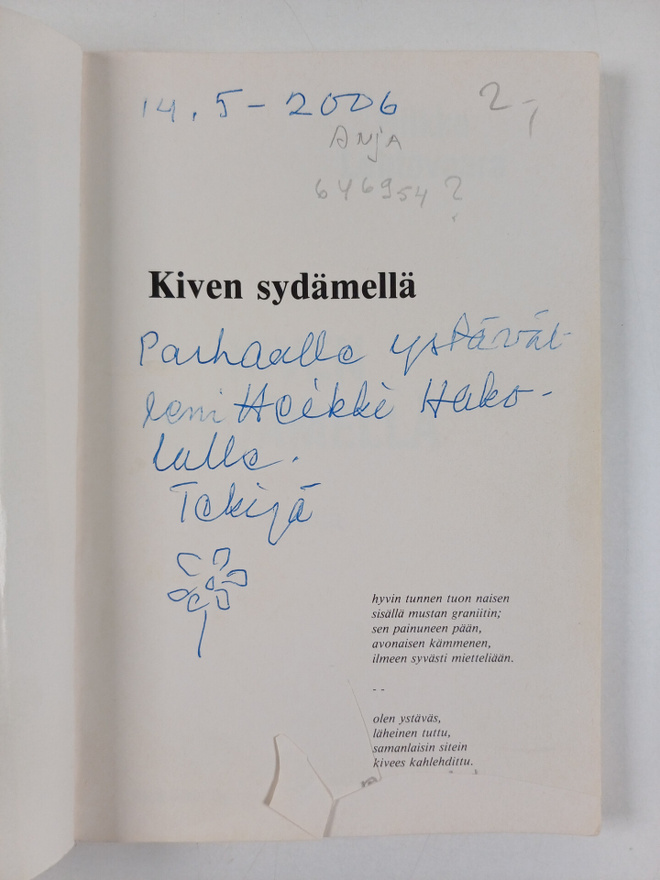 14.5-2006
2-,
Anja
646954?
Kiven sydämellä
Parhaalle ystäväl-
leni Heikki Hako-
lalle.
Tekijä
hyvin tunnen tuon naisen
sisällä mustan graniitin;
sen painuneen pään,
avonaisen kämmenen,
ilmeen syvästi mietteliään.
- -
olen ystäväs,
läheinen tuttu,
samanlaisin sitein
kivees kahlehdittu.